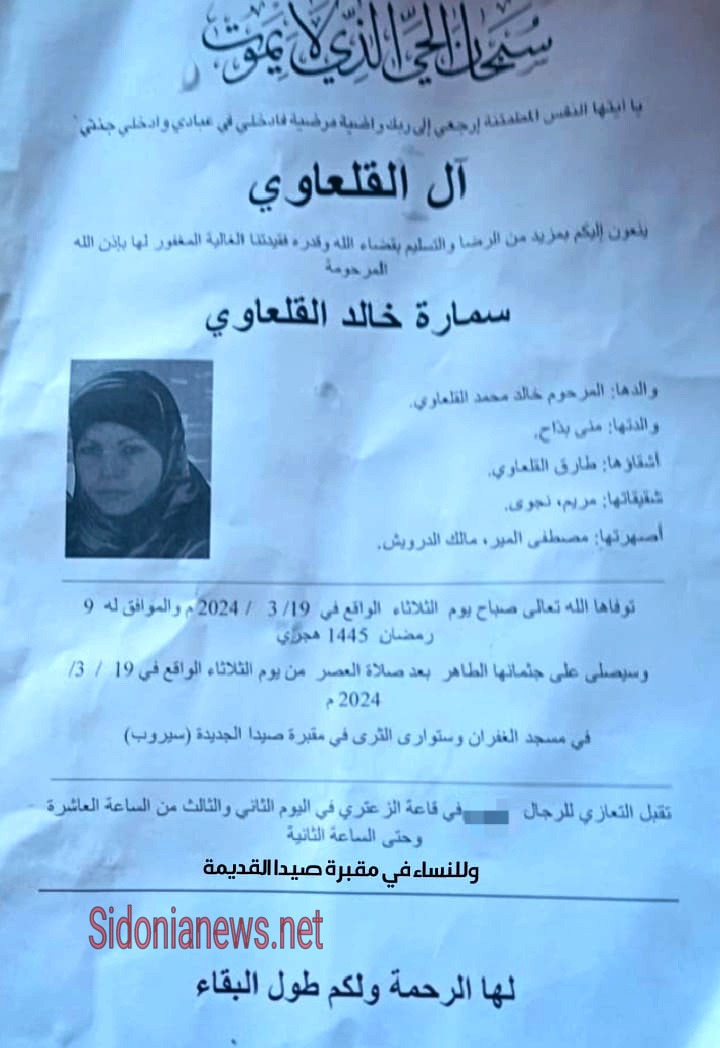 سبحان الحي الذي لا يموت
يا أيتها النفس المطمئنة إرجعي إلى ربك راضية مرضية فادخلي في عبادي وادخلي جنتي
آل القلعاوي
ينعون إليكم بمزيد من الرضا والتسليم بقضاء الله وقدره فقيدتنا الغالية المغفور لها بإذن الله
المرحومة
سمارة خالد القلعاوي
والدها: المرحوم خالد محمد القلعاوي.
والدتها: منى بذاح.
أشقاؤها: طارق القلعاوي.
شقيقاتها: مريم، نجوى.
أصهرتها: مصطفى المير، مالك الدرويش.
توفاها الله تعالى صباح يوم الثلاثاء الواقع في 19/ 3 / 2024 م والموافق له 9
رمضان 1445 هجري
وسيصلى على جثمانها الطاهر بعد صلاة العصر من يوم الثلاثاء الواقع في 19 / 3/
2024 م
في مسجد الغفران وستوارى الثرى في مقبرة صيدا الجديدة (سيروب)
تقبل التعازي للرجال في قاعة الزعتري في اليوم الثاني والثالث من الساعة العاشرة
وحتى الساعة الثانية
وللنساء في مقبرة صيدا القديمة
Sidonianews.net
لها الرحمة ولكم طول البقاء